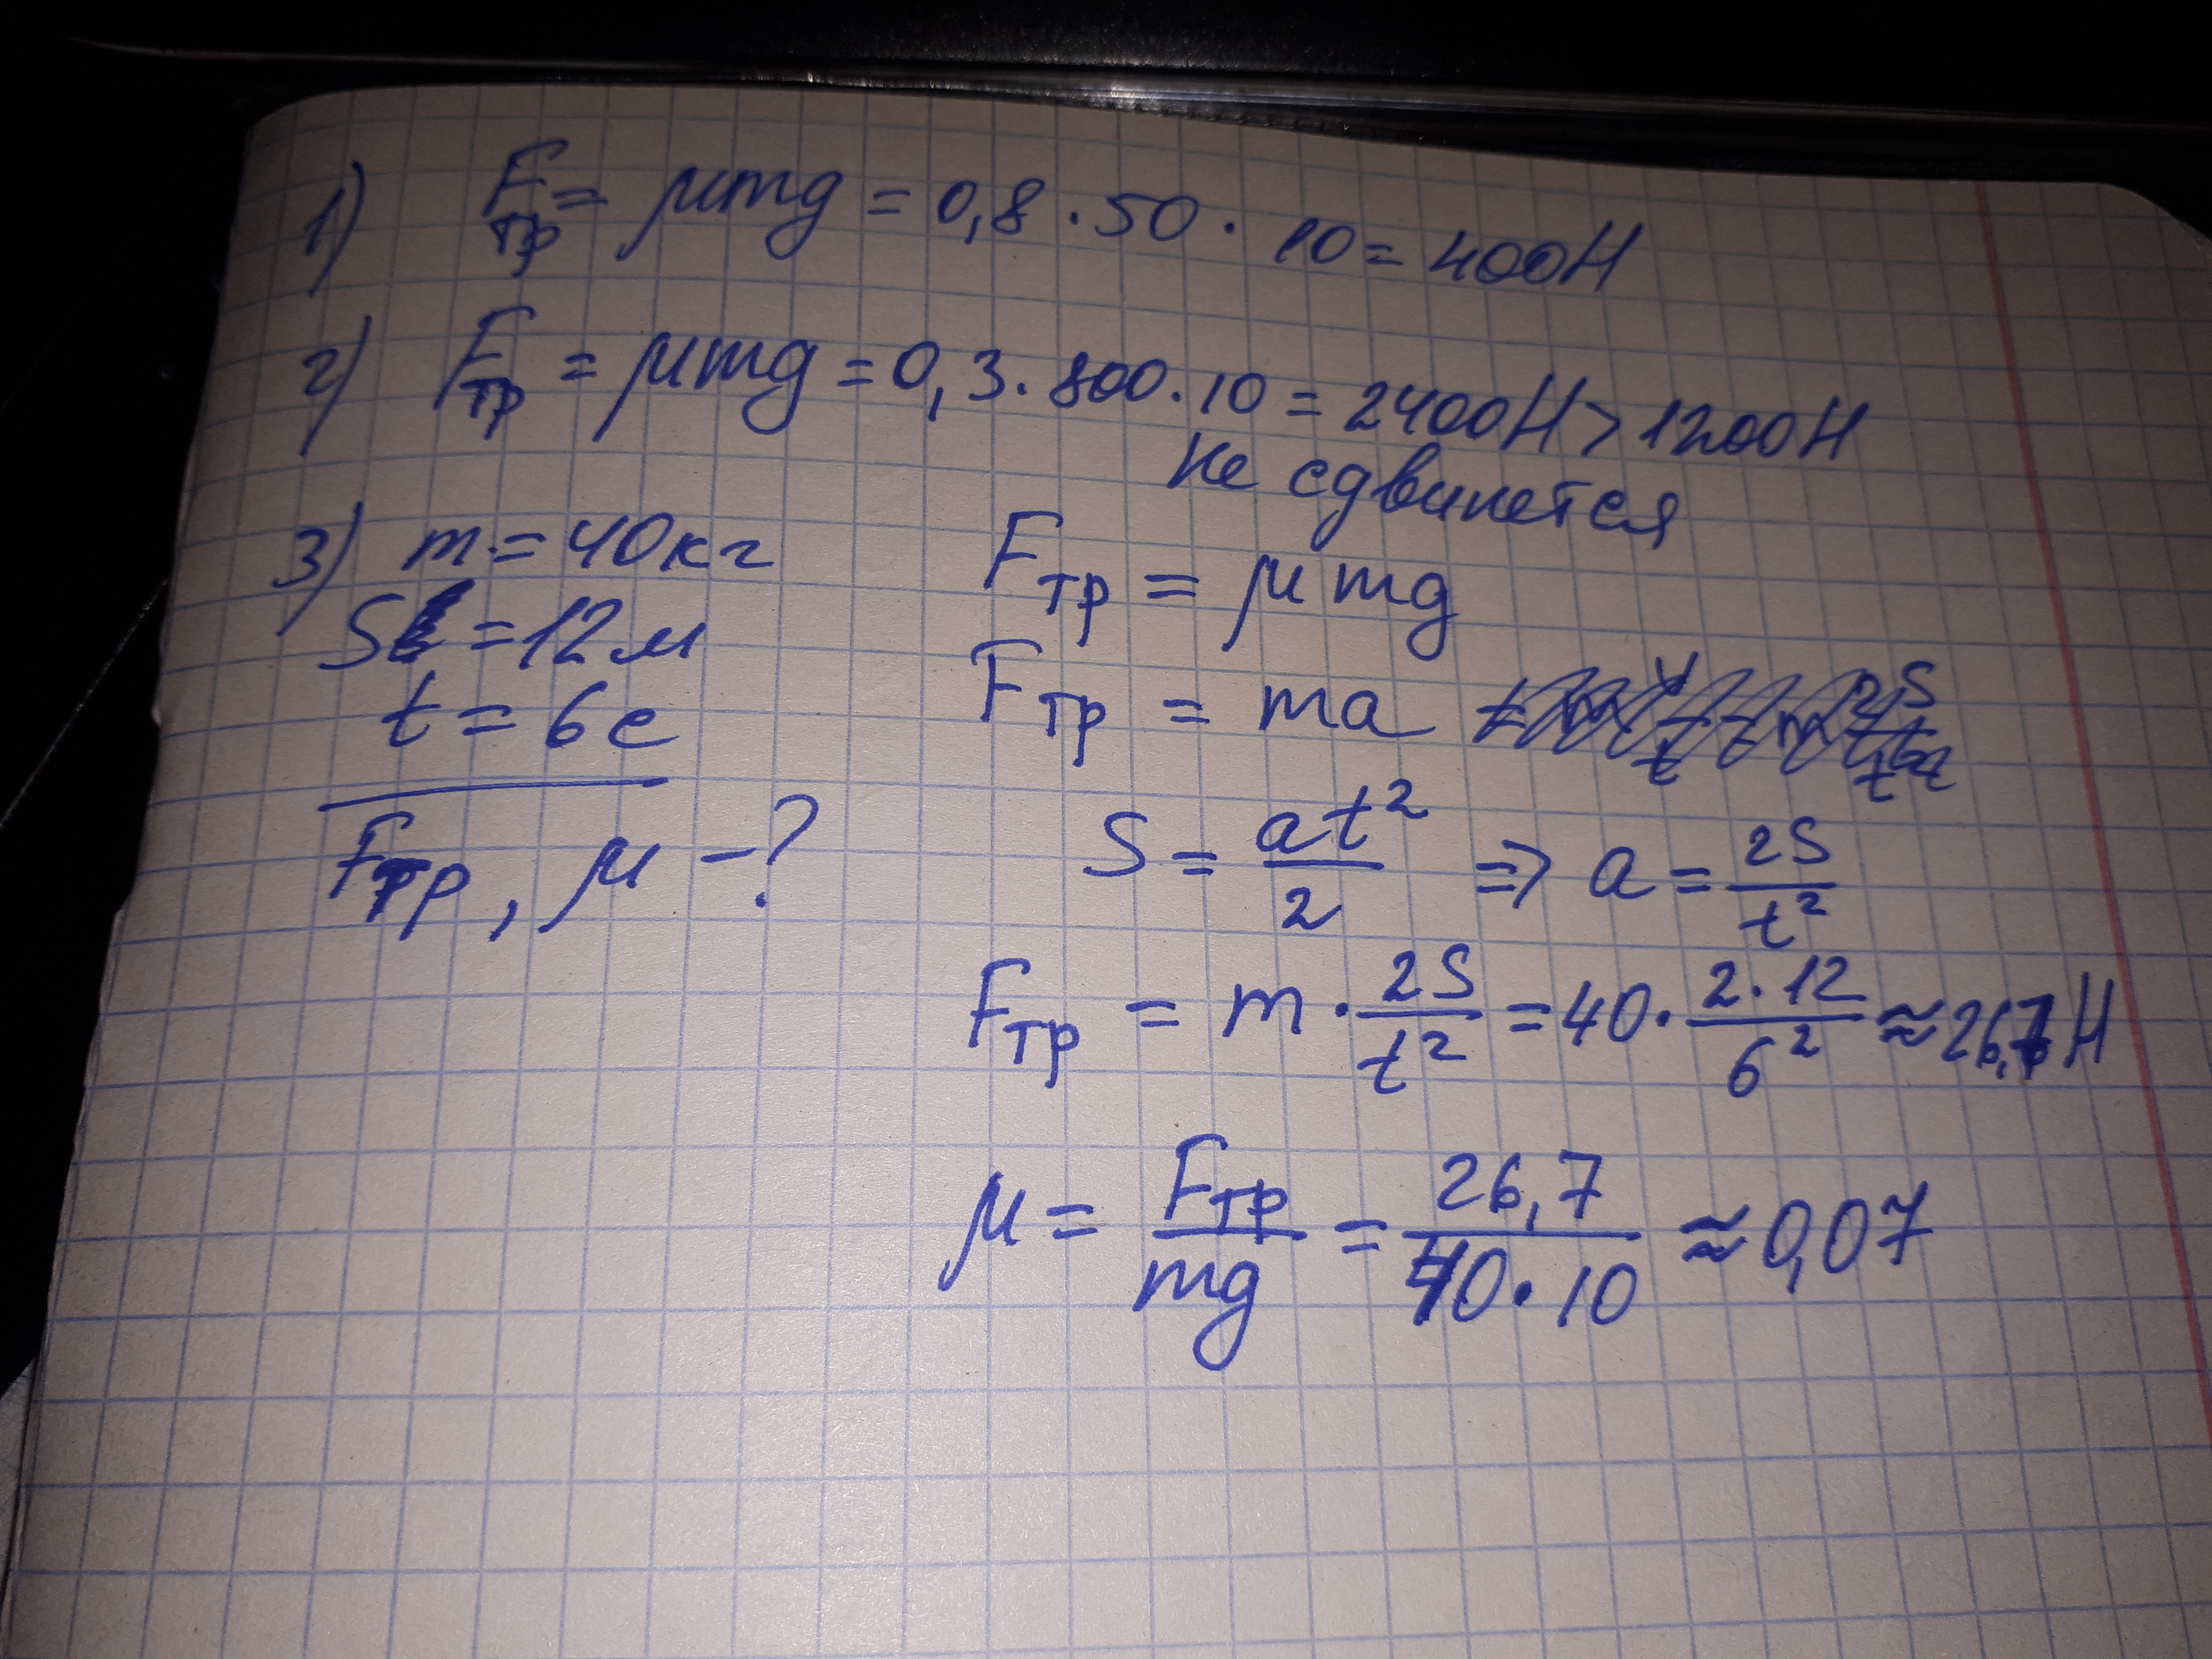 1) Fтр = μmg = 0,8 · 50 · 10 = 400Н
2) Fтр = μmg = 0,3 · 800 · 10 = 2400Н > 1200Н
не сдвинется
3) m = 40кг
S = 12м
t = 6с
Fтр, μ – ?
Fтр = μmg
Fтр = ma
S = at²/2 ⇒ a = 2S/t²
Fтр = m · 2S/t² = 40 · 2·12/6² ≈ 26,7Н
μ = Fтр/mg = 26,7/40·10 ≈ 0,07